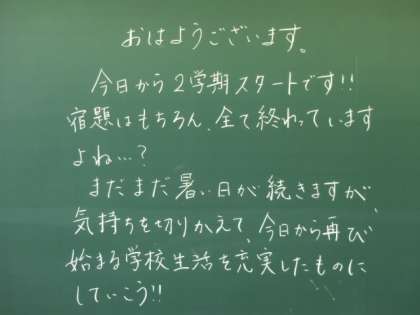 おはようございます。
今日から2学期スタートです!!
宿題はもちろん、全て終わっています
よね…?
まだまだ暑い日が続きますが、
気持ちを切りかえて、今日から再び
始まる学校生活を充実したものに
していこう!!